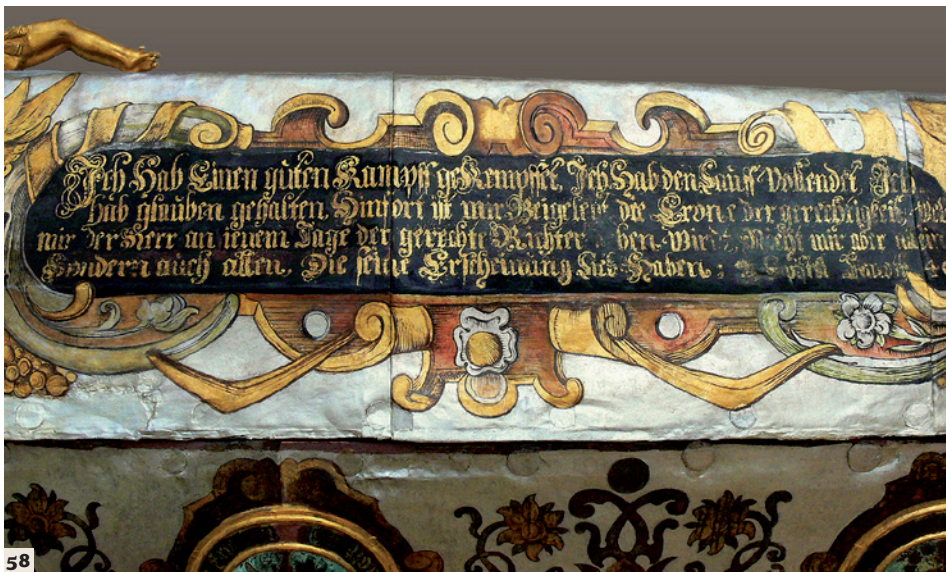 Ich Hab Einen guten Kampff gekempffet, Ich Hab den Lauff Vollendet, Ich
hab glauben gehalten, Hinfort ist mir Beigelegt die Crone der gerechtigkeit,
mir der Herr an ienem Tage der gerechte Richter Wird, Nicht mir aber
Sondern auch allen, Die seine Erscheinung Lieb Haben;
58